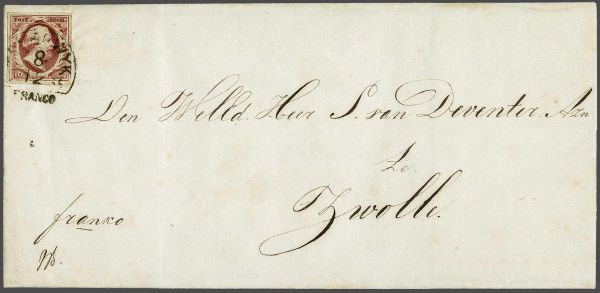 POST ZEGEL
8
FRANCO
Den Welld. Heer S. van Deventer. Azn
te
Zwolle.
franko